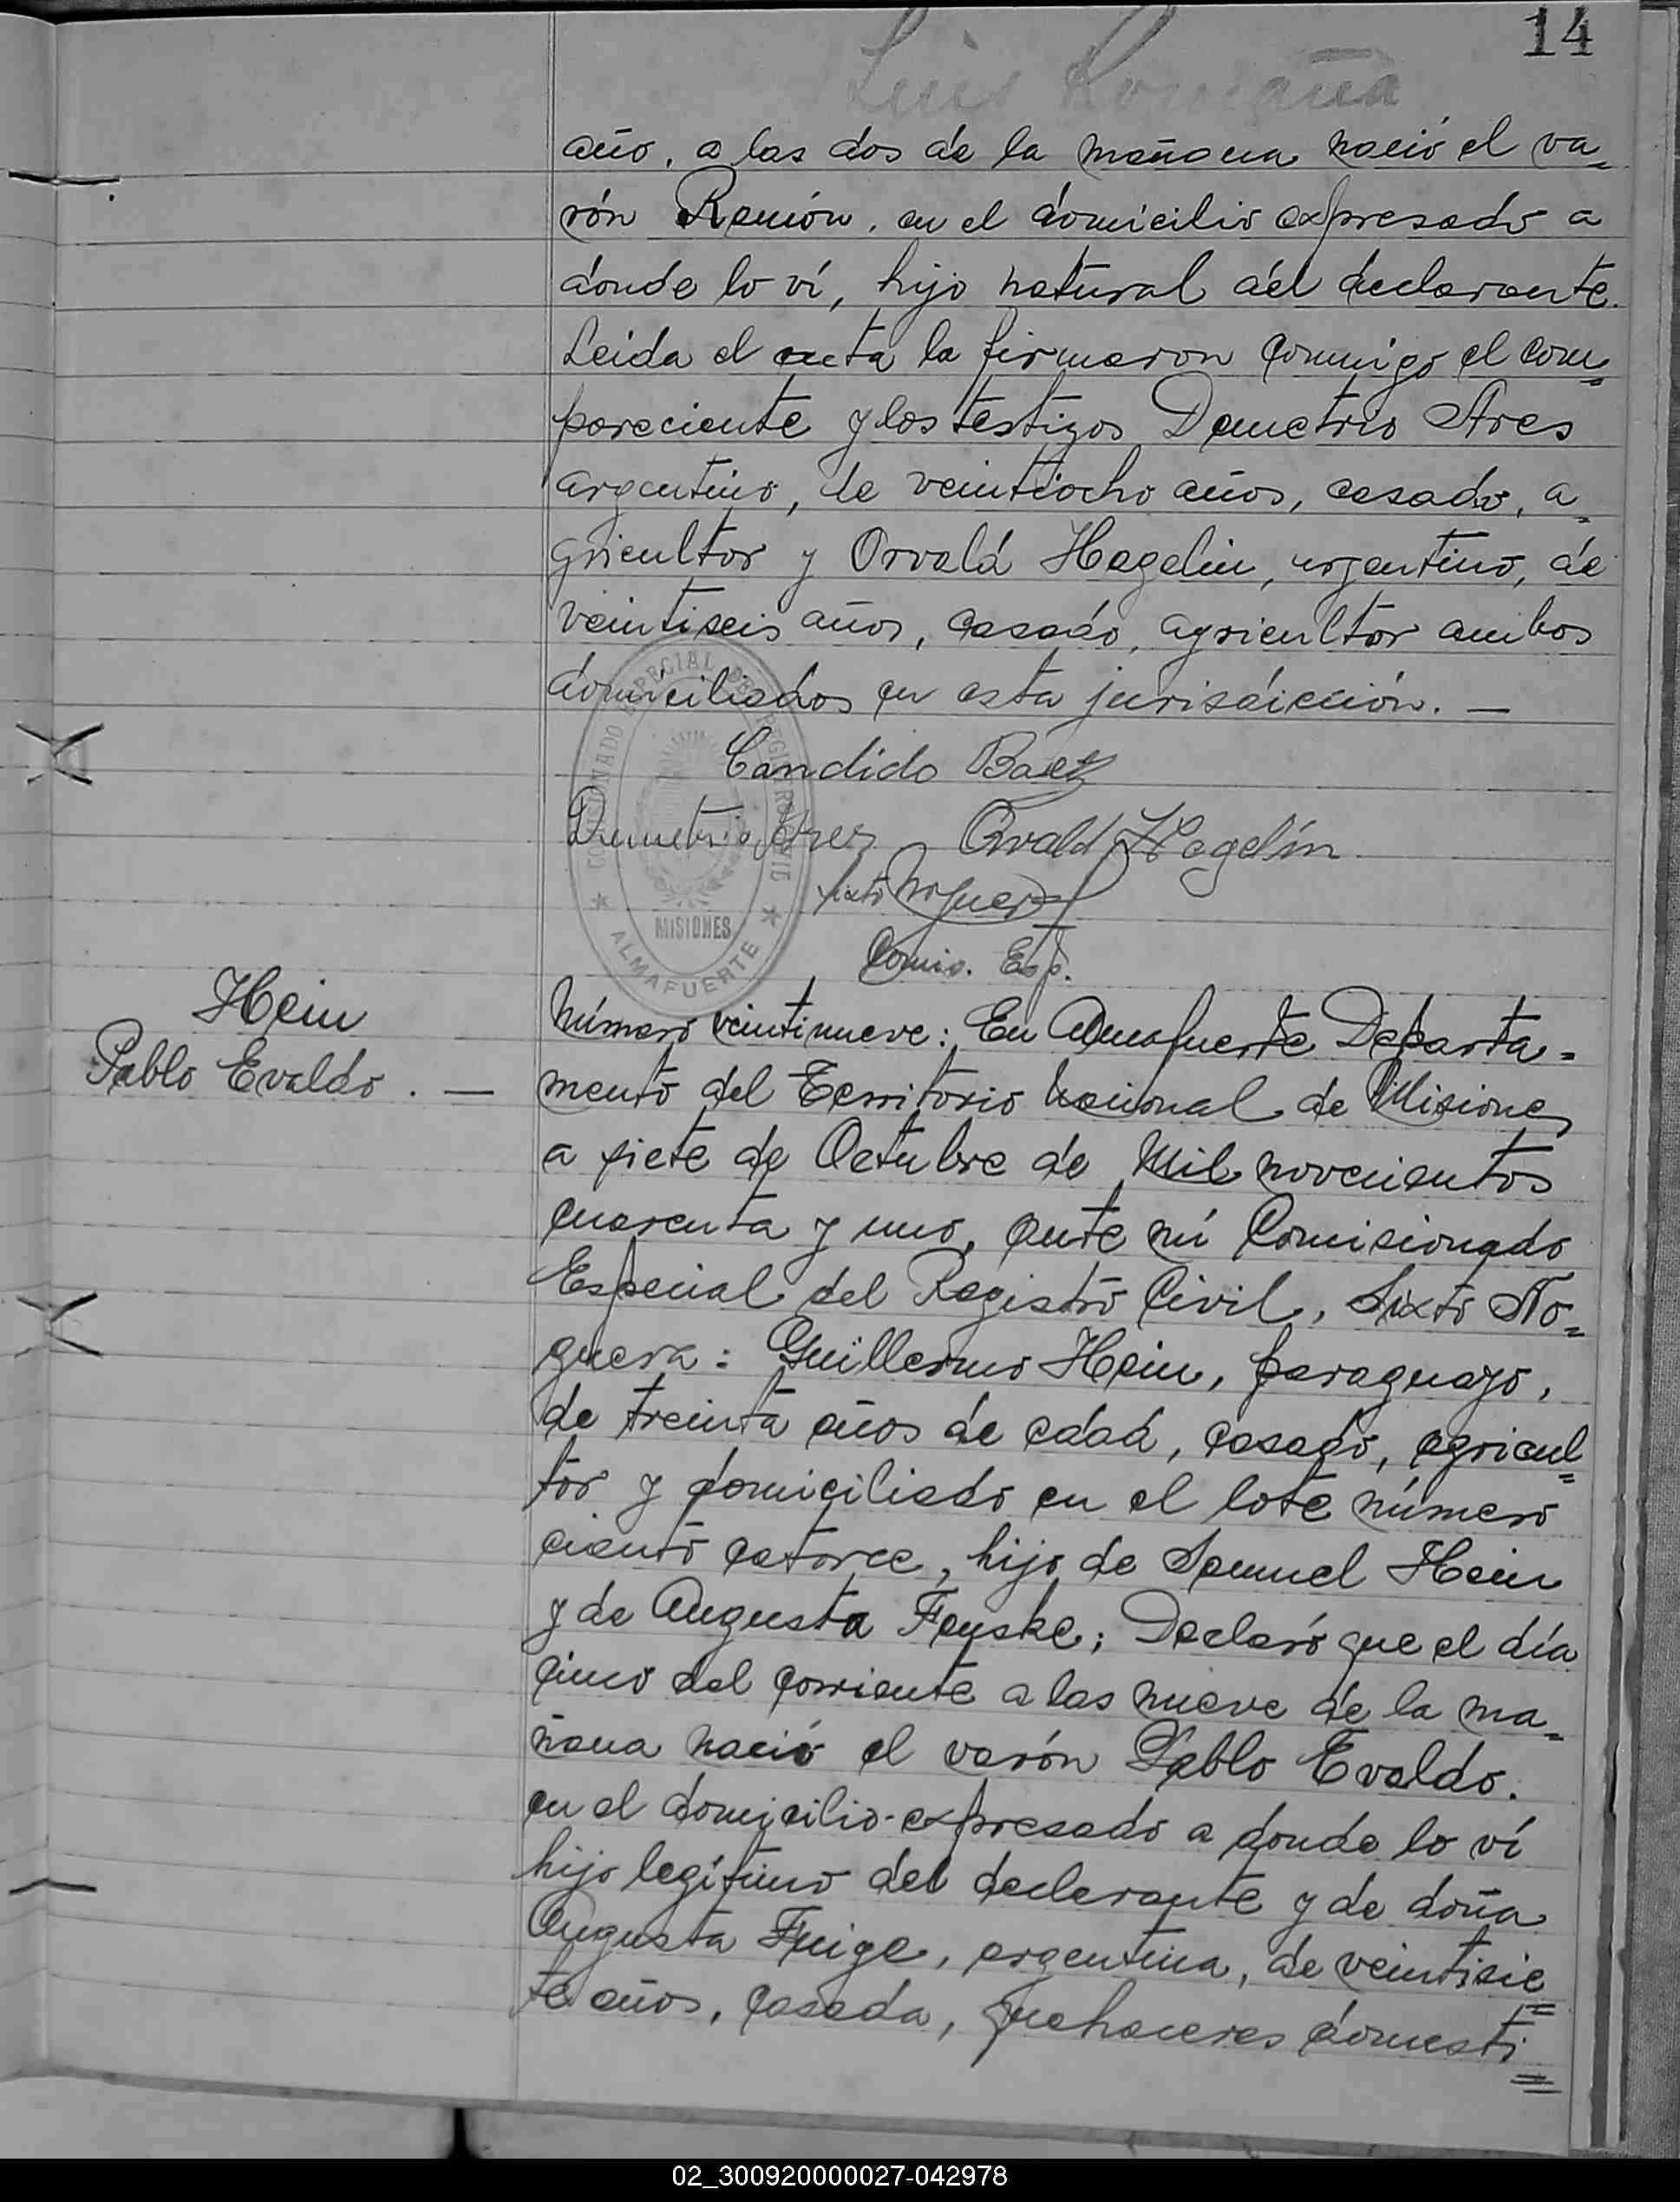 14
Luis Romaña
año, a las dos de la mañana nació el va=
rón Ramón, en el domicilio expresado a
donde lo ví, hijo natural del declarante.
Leida el acta la firmaron conmigo el com=
pareciente y los testigos Demetrio Ares
argentino, de veintiocho años, casado, a=
gricultor y Orvald Hagelin, argentino, de
veintiseis años, casado, agricultor ambos
domiciliados en esta jurisdicción. —
Candido Baez
Demetrio Ares Orvald Hagelin
Sixto Noguera
Comis. Esp.
COMISIONADO ESPECIAL DEL REGISTRO CIVIL
MISIONES
ALMAFUERTE
Hein
Pablo Evaldo. —
Número veintinueve: En Almafuerte Departa=
mento del Territorio Nacional de Misiones
a siete de Octubre de Mil novecientos
cuarenta y uno, ante mí Comisionado
Especial del Registro Civil, Sixto No=
guera: Guillermo Hein, paraguayo,
de treinta años de edad, casado, agricul=
tor y domiciliado en el lote número
ciento catorce, hijo de Samuel Hein
y de Augusta Fenske; Declaró que el día
cinco del corriente a las nueve de la ma=
ñana nació el varón Pablo Evaldo.
en el domicilio expresado a donde lo ví
hijo legítimo del declarante y de doña
Augusta Feige, argentina, de veintisie=
te años, casada, quehaceres domesti=
02_300920000027-042978